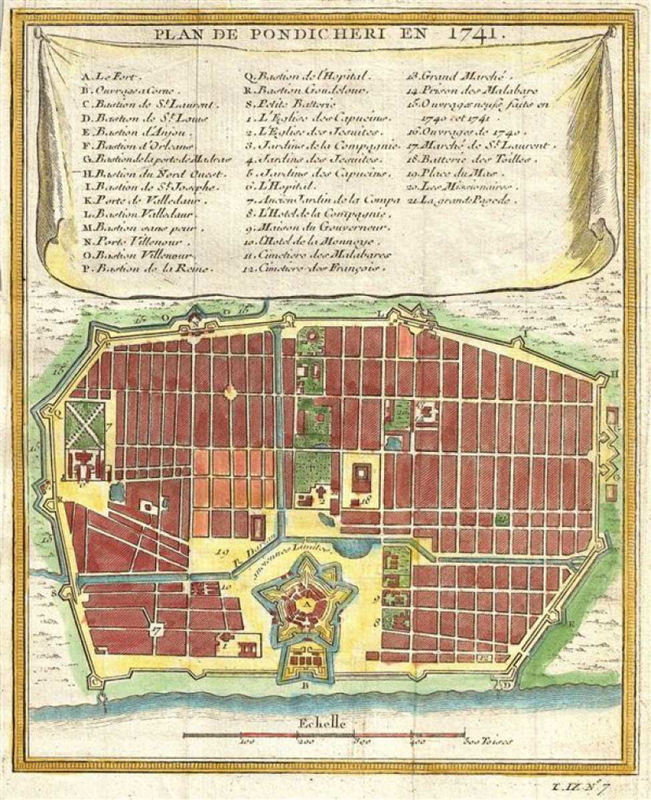 PLAN DE PONDICHERI EN 1741.
A. Le Fort.
B. Ouvrage a Corne.
C. Bastion de St. Laurent.
D. Bastion de St. Louis
E. Bastion d'Anjou.
F. Bastion d'Orleans
G. Bastion de la porte de Madras
H. Bastion du Nord Ouest.
I. Bastion de St. Josephe.
K. Porte de Valledaur.
L. Bastion Valledaur.
M. Bastion sans peur.
N. Porte Villenour.
O. Bastion Villenour.
P. Bastion de la Reine.
Q. Bastion de l'Hopital.
R. Bastion Goudelour.
S. Petite Batterie
1. L'Eglise des Capucins.
2. L'Eglise des Jesuites.
3. Jardins de la Compagnie.
4. Jardins des Jesuites.
5. Jardins des Capucins.
6. L'Hopital.
7. Ancien Jardin de la Compa
8. L'Hotel de la Compagnie.
9. Maison du Gouverneur.
10. l'Hotel de la Monnoye.
11. Cimetiere des Malabares
12. Cimetiere des François.
13. Grand Marché.
14. Prison des Malabars
15. Ouvrages neufs faits en
1740 et 1741.
16. Ouvrages de 1740.
17. Marché de St. Laurent.
18. Batterie des Toilles.
19. Place du Mas.
20. Les Missionaires
21. La grande Pagode.
15
O
15
M
L
I
H
15
Q
7
15
R
18
G
19
anciennes Limites
A
S
9
8
E
7
10
12
B
D
Echelle
100
200
300
500 Toises
T. IX. N.° 7